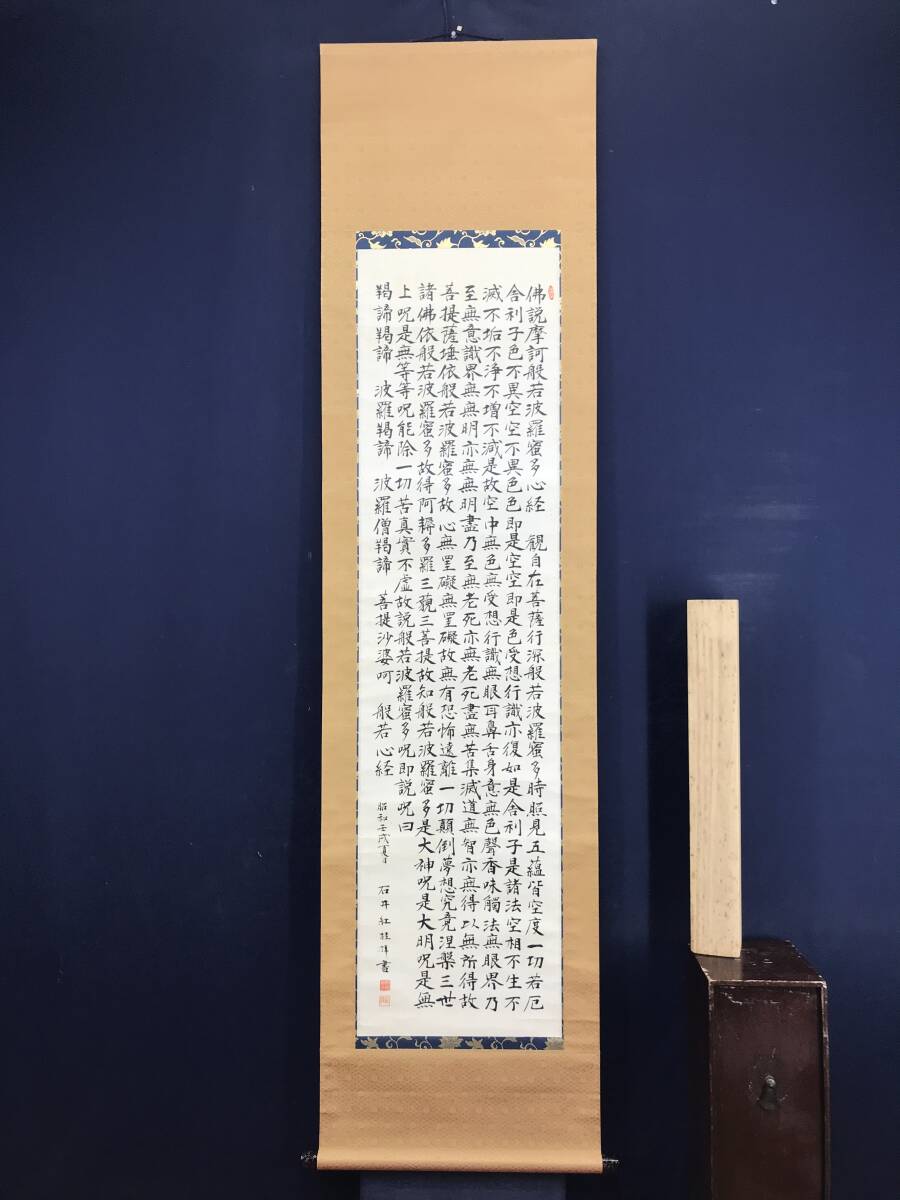 佛説摩訶般若波羅蜜多心経　観自在菩薩行深般若波羅蜜多時照見五蘊皆空度一切苦厄
舎利子色不異空空不異色色即是空空即是色受想行識亦復如是舎利子是諸法空相不生不
滅不垢不浄不増不減是故空中無色無受想行識無眼耳鼻舌身意無色聲香味觸法無眼界乃
至無意識界無無明亦無無明盡乃至無老死亦無老死盡無苦集滅道無智亦無得以無所得故
菩提薩埵依般若波羅蜜多故心無罣礙無罣礙故無有恐怖遠離一切顛倒夢想究竟涅槃三世
諸佛依般若波羅蜜多故得阿耨多羅三藐三菩提故知般若波羅蜜多是大神呪是大明呪是無
上呪是無等等呪能除一切苦真實不虚故説般若波羅蜜多呪即説呪曰
羯諦羯諦　波羅羯諦　波羅僧羯諦　菩提沙婆呵　般若心経　昭和壬戌夏日　石井紅桂拝書